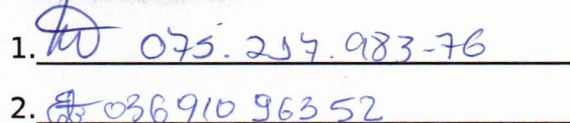 1. 075.217.983-76
2. 03691096352